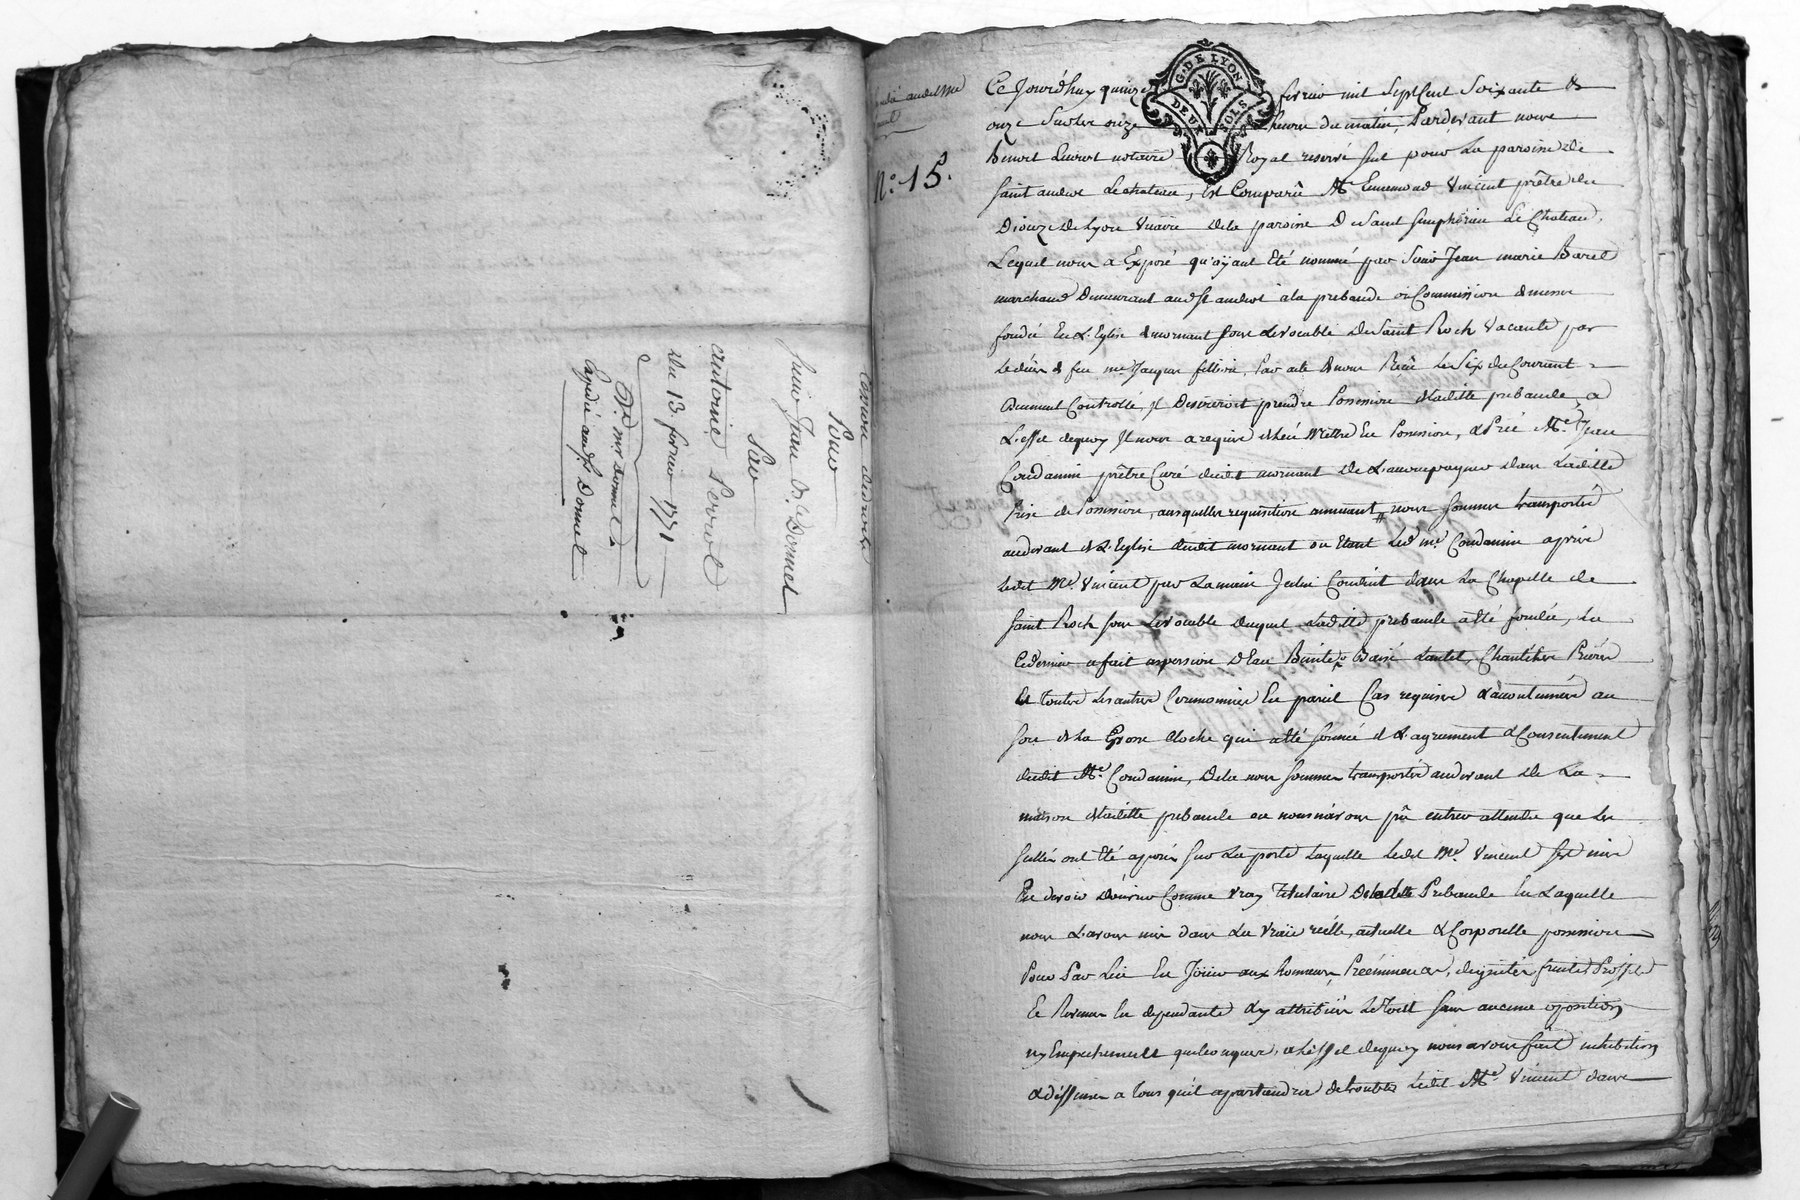 Cession de droits
Pour
Sieur Jean B.te Donnet
Par
antoine Peyrol
du 13 fevrier 1771
Expedié audit Sr Donnet
N.o 15.
G. DE LYON
DEUX SOLS
Ce Jourd'huy quinze fevrier mil Sept Cent Soixante &
onze Sur les onze heures du matin, Pardevant nous
Benoit notaire Royal reservé seul pour La paroisse de
Saint andre Le chateau, Est Comparû M.e Ennemond Vincent prêtre du
Diocèze De Lyon Vicaire de la paroisse De Saint Simphorien Le Chateau,
Lequel nous a Exposé qu'ayant Eté nommé par Sieur Jean marie Barel
marchand Demeurant aud. St andre a la prebande ou Commission de messes
fondée En L'Eglise de mornant Sous Le vocable De Saint Roch Vacante par
Le décès de feu me Jacques, Par acte de nous Reçû Le Six du Courant
Duement Controllé, Il Desireroit prendre Possession de ladite prebande, a
L'effet de quoy Il nous a requis de L'en Mettre En Possession, & Prié M.e Jean
Condamin prêtre Curé dudit mornant de L'accompagner dans Ladite
Prise de Possession, ausquelles requisitions annuant nous Sommes transportés
audevant de L'Eglise dudit mornant ou Etant Led. me. Condamin a pris
Ledit M.e Vincent par La main Icelui Conduit dans La Chapelle de
Saint Roch Sous Le vocable Duquel Ladite prebande a été fondée, Là
Ce dernier a fait aspersion d'Eau Bénite, Baisé L'autel, Chanté les Prières
Et toutes Les autres Ceremonies En pareil Cas requises & accoutumées au
Son de La Grosse Cloche qui a été sonnée de L'agrement & Consentement
dudit M.e Condamin, De la nous Sommes transportés audevant de La
maison de ladite prebande ou nous n'avons pû entrer attendu que Les
Scellés ont Eté aposés Sur La porte Laquelle Ledit M.e Vincent s'est mis
En devoir d'ouvrir Comme vray titulaire De ladite Prebande En Laquelle
nous L'avons mis dans La Vraie réelle, actuelle & Corporelle possession
Pour Par Lui En Jouir aux honneurs, Prééminences, dignités fruits, Profits
Et Revenus En dependants & y attribués Le Tout Sans aucune oposition
ny Empechements quelconques, a L'effet de quoy nous avons fait inhibitions
& deffenses a tous qu'il apartiendra de troubler Ledit M.e Vincent dans